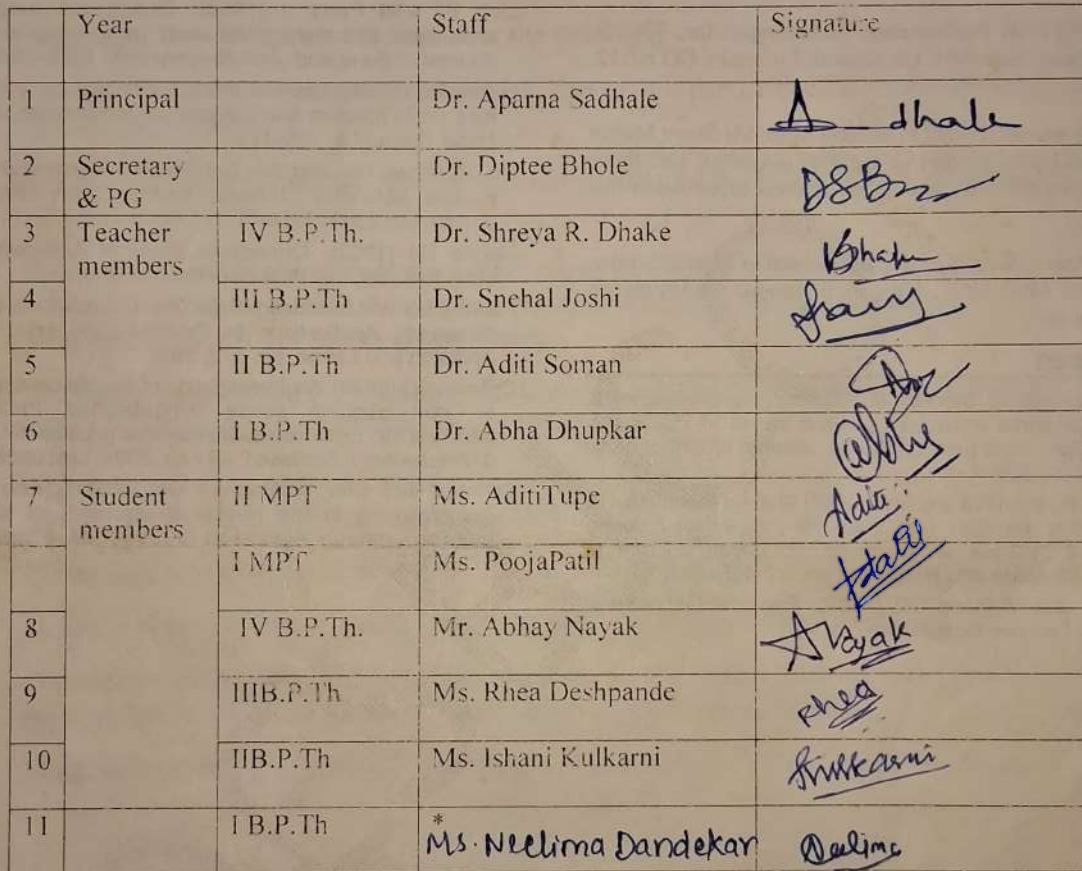 Year Staff Signature
1 Principal Dr. Aparna Sadhale A dhale
2 Secretary & PG Dr. Diptee Bhole
3 Teacher members IV B.P.Th. Dr. Shreya R. Dhake
4 III B.P.Th Dr. Snehal Joshi
5 II B.P.Th Dr. Aditi Soman
6 I B.P.Th Dr. Abha Dhupkar
7 Student members II MPT Ms. AditiTupe Aditi
I MPT Ms. PoojaPatil
8 IV B.P.Th. Mr. Abhay Nayak ANayak
9 IIIB.P.Th Ms. Rhea Deshpande Rhea
10 IIB.P.Th Ms. Ishani Kulkarni
11 I B.P.Th * Ms. Neelima Dandekar Neelima